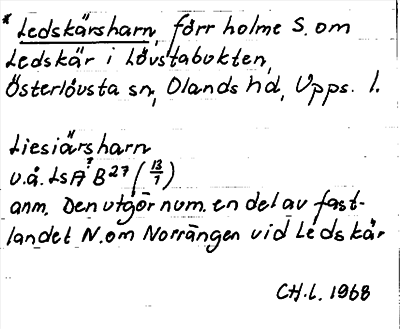 * Ledskärsharn, förr holme S. om
Ledskär i Lövstabukten,
Österlövsta sn, Olands hd, Upps. l.
Liesiärsharn
u.å. LsA? B27 (13/7)
anm. Den utgör num. en del av fast-
landet N. om Norrängen vid Ledskär
CH.L. 1968